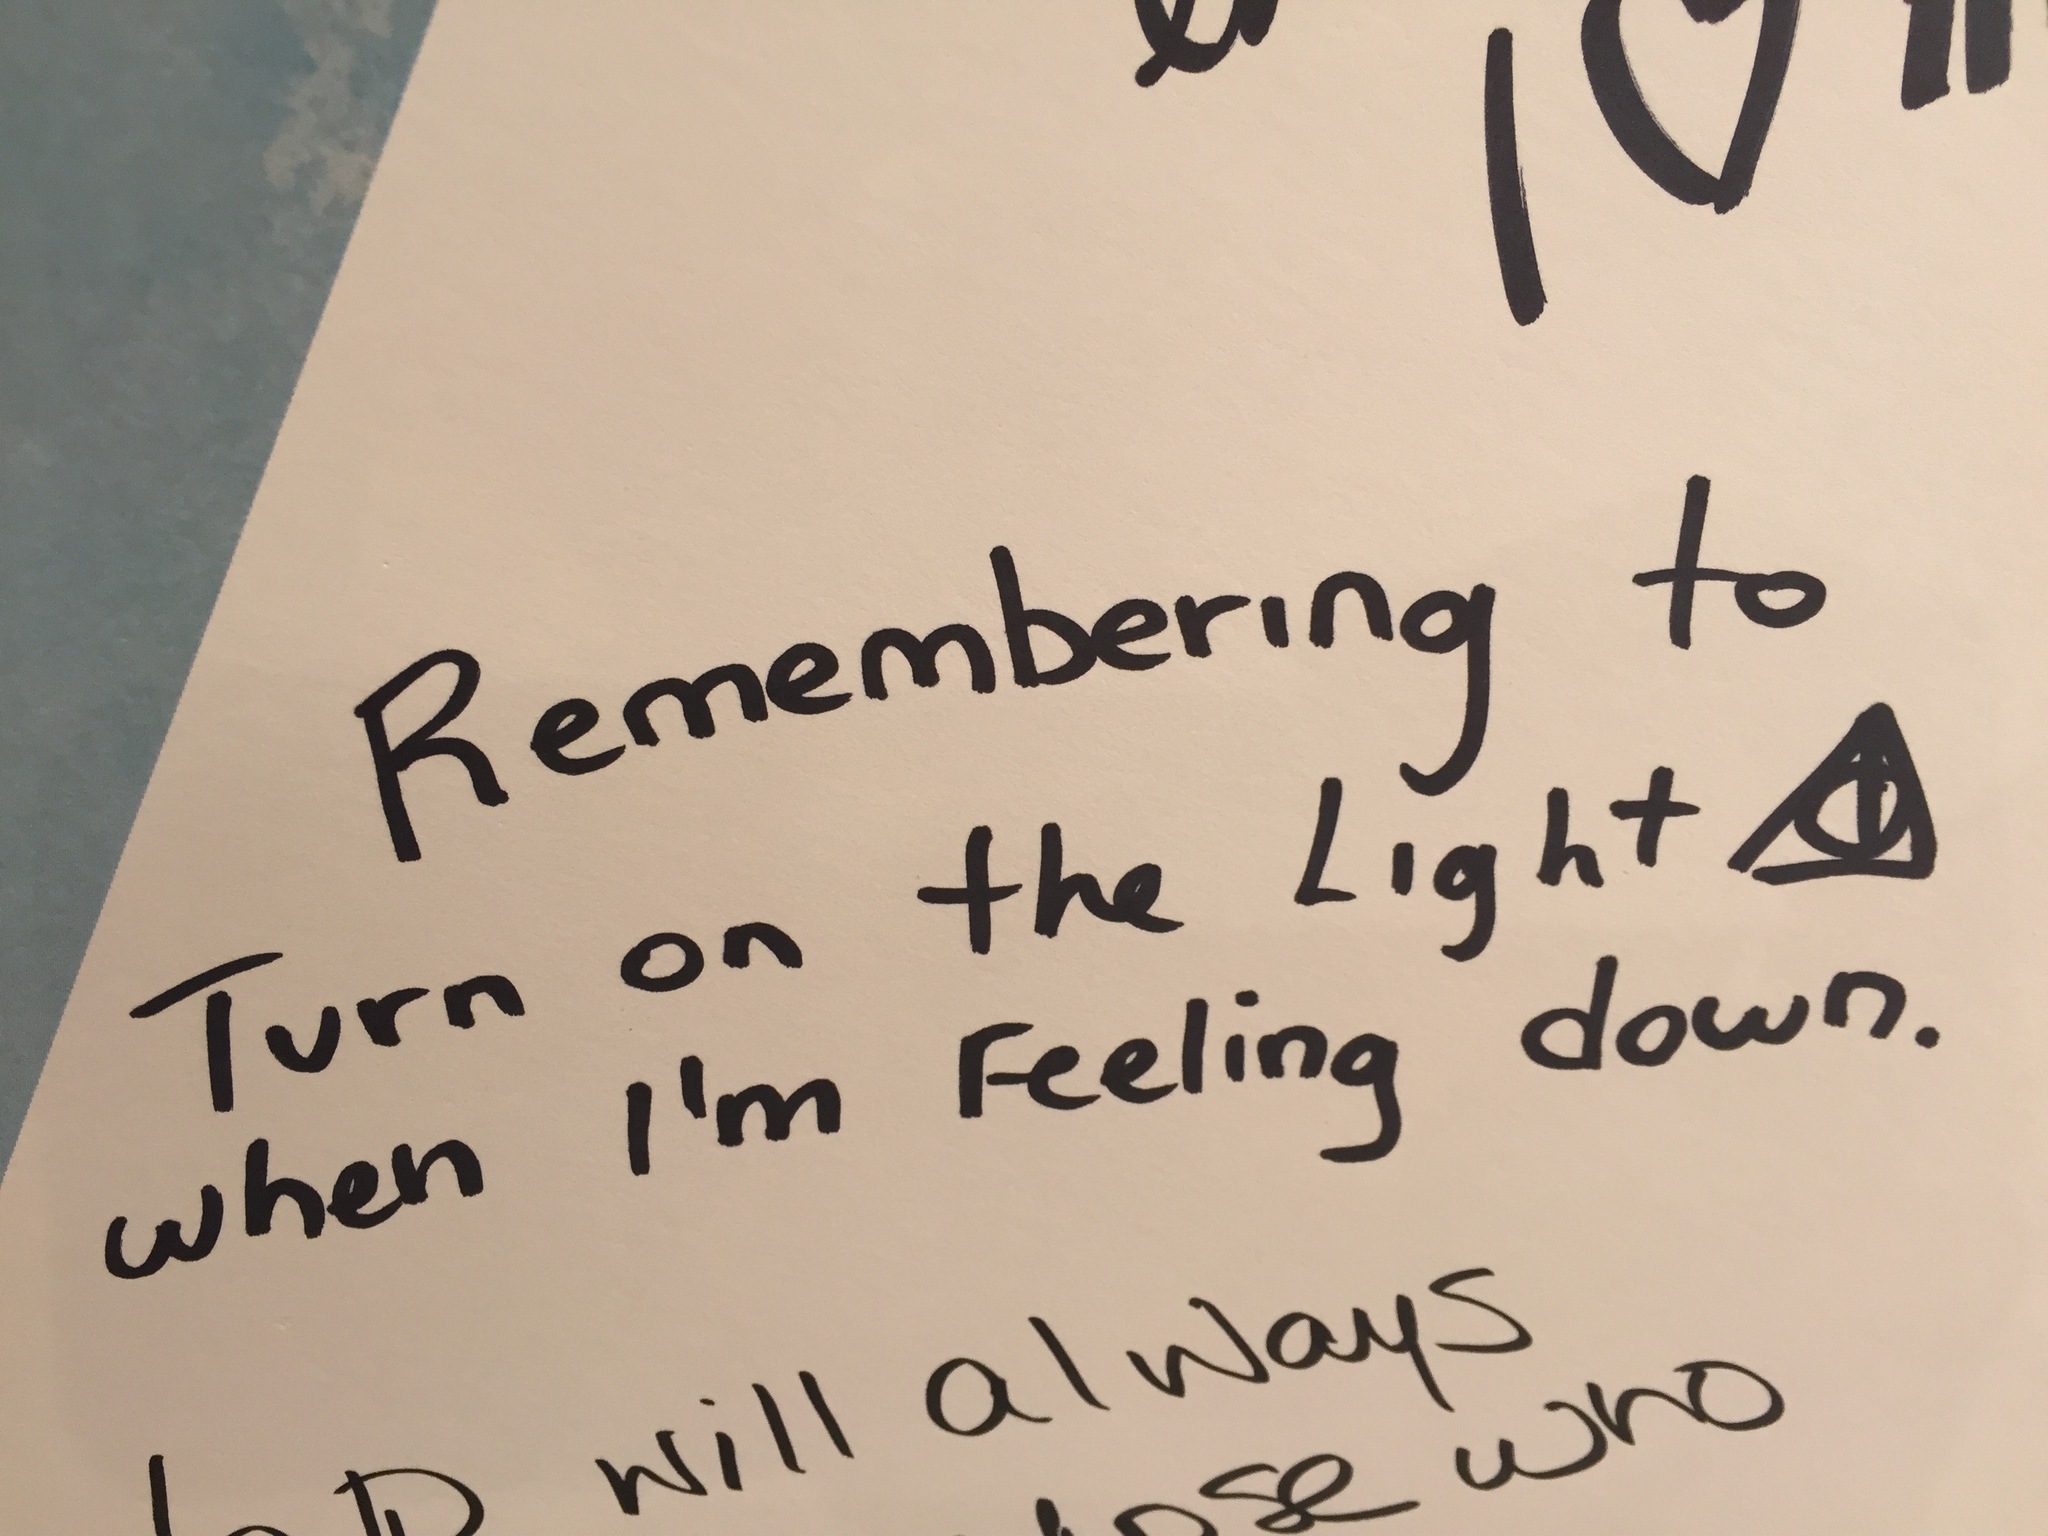 Remembering to
Turn on the Light
when I'm Feeling down.
will always
who